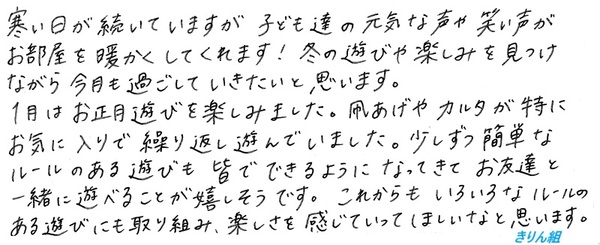 寒い日が続いていますが 子ども達の元気な声や笑い声が
お部屋を暖かくしてくれます！冬の遊びや楽しみを見つけ
ながら今月も過ごしていきたいと思います。
1月はお正月遊びを楽しみました。凧あげや カルタが特に
お気に入りで繰り返し遊んでいました。少しずつ簡単な
ルールのある遊びも 皆でできるようになってきて お友達と
一緒に遊べることが嬉しそうです。これからも いろいろなルールの
ある遊びにも取り組み、楽しさを感じていってほしいなと思います。
きりん組